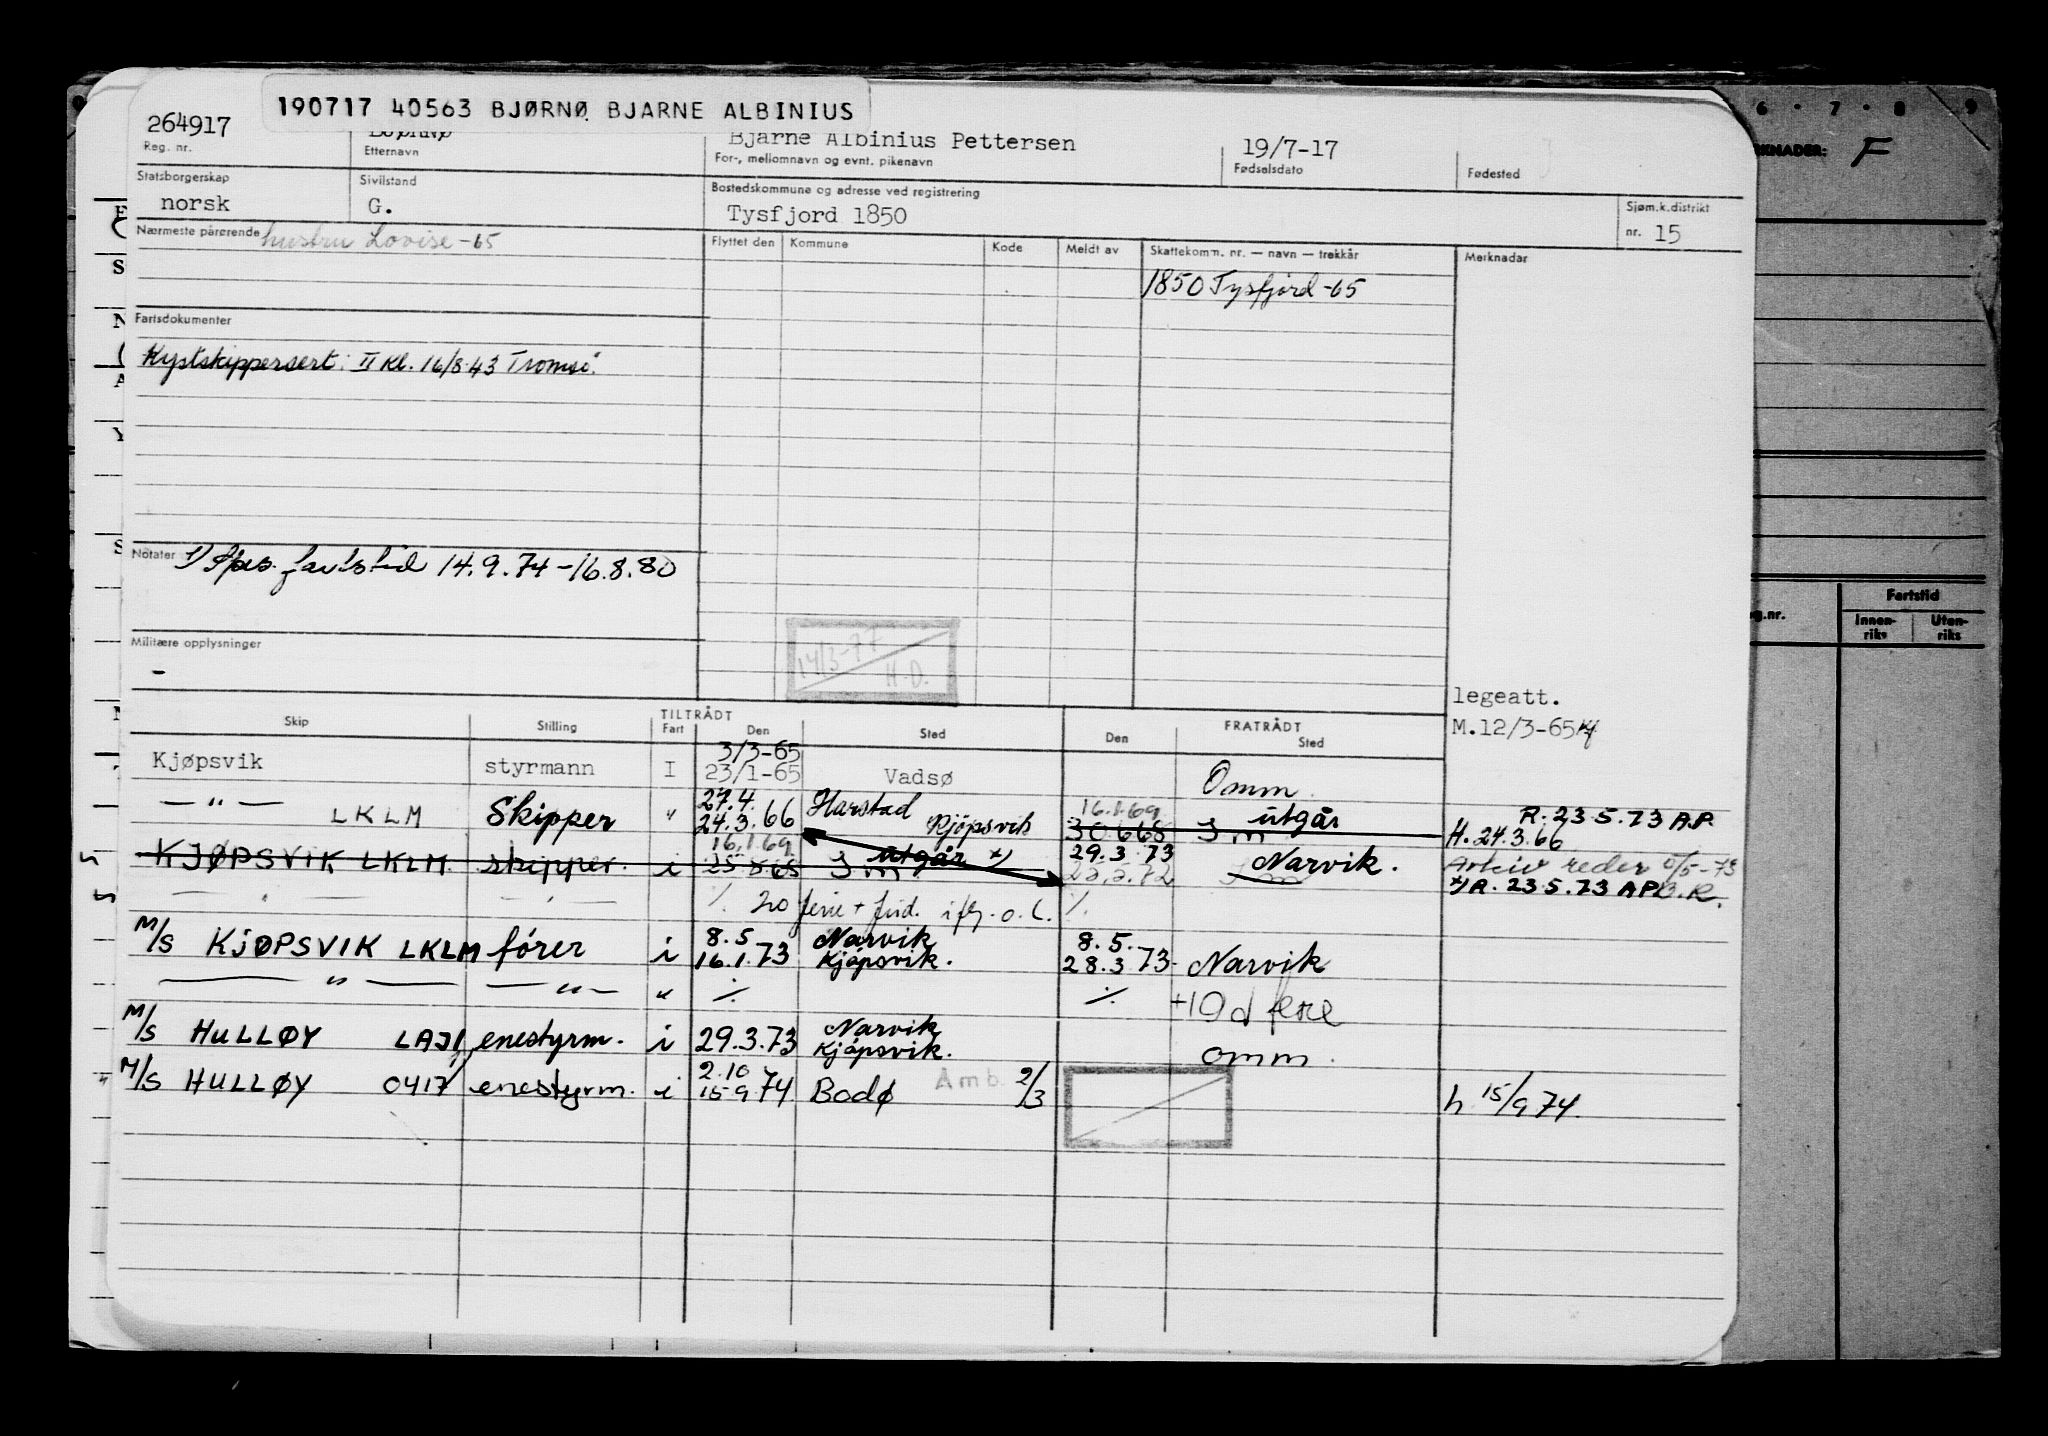 190717 40563 BJØRNØ BJARNE ALBINIUS
264917 Bjarne Albinius Pettersen 19/7-17
Reg. nr. Etternavn For-, mellomnavn og evnt. pikenavn Fødselsdato Fødested
Statsborgerskap Sivilstand Bostedskommune og adresse ved registrering Sjøm.k.distrikt
norsk G. Tysfjord 1850 nr. 15
Nærmeste pårørende hustru Lovise -65 Flyttet den Kommune Kode Meldt av Skattekomm. nr. — navn — trekkår Merknader
1850 Tysfjord -65
Fartsdokumenter
Kystskippersert. II Kl. 16/8-43 Tromsø.
Notater 1) fartstid 14.9.74 - 16.8.80
Militære opplysninger
-
14/3-77
H.D.
legeatt.
M.12/3-65
TILTRÅDT FRATRÅDT
Skip Stilling Fart Den Sted Den Sted
3/3-65
Kjøpsvik styrmann I 23/1-65 Vadsø Omm.
27.4. Harstad 16.1.69 utgår R. 23.5.73 A.P.
— " — LKLM Skipper " 24.3.66 Kjöpsvik 30.6.68 H. 24.3.66
16.1.69 utgår x) 29.3.73 Narvik. Arkiv reder
KJØPSVIK LKLM skipper. i 22.2.72 x) R. 23.5.73 A.P. B.R.
— " — — " — ·/. ferie + ·/.
M/S KJØPSVIK LKLM fører i 8.5 Narvik 8.5.
16.1.73 Kjöpsvik. 28.3.73 Narvik
— " — — " — " ·/. ·/. +10 d ferie
M/S HULLØY LAJI enestyrm. i 29.3.73 Narvik
Kjöpsvik. omm.
M/S HULLØY 0417 enestyrm. i 2.10 Bodø Amb. 2/3 h 15/9 74
15 9 74
6 · 7 · 8 9
KNADER: F
g.nr. Fartstid
Innen-riks Uten-riks